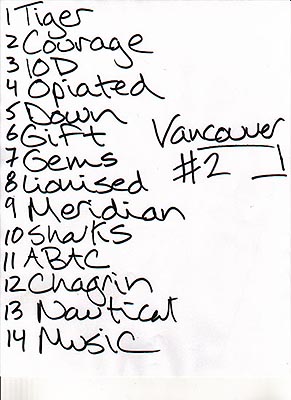 1 Tiger
2 Courage
3 IOD
4 Opiated
5 Down
6 Gift
7 Gems
8 Lionised
9 Meridian
10 Sharks
11 ABAC
12 Chagrin
13 Nautical
14 Music
Vancouver
#2